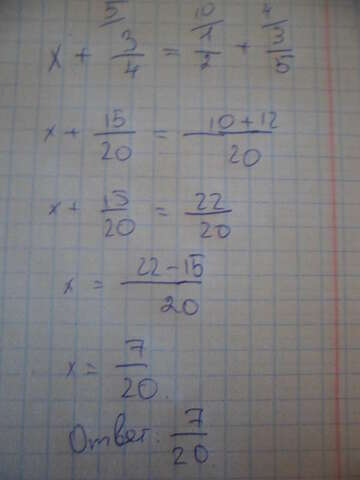 5/ 10/ 4/
x + 3/4 = 1/2 + 3/5
x + 15/20 = 10+12/20
x + 15/20 = 22/20
x = 22-15/20
x = 7/20
Ответ: 7/20